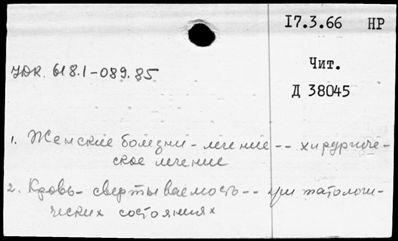 17.3.66 НР
Чит.
Д 38045
УДК. 618.1-089.85
1. Женские болезни - лечение -- хирургиче-
ское лечение
2. Кровь - свертываемость -- при патологи-
ческих состояниях